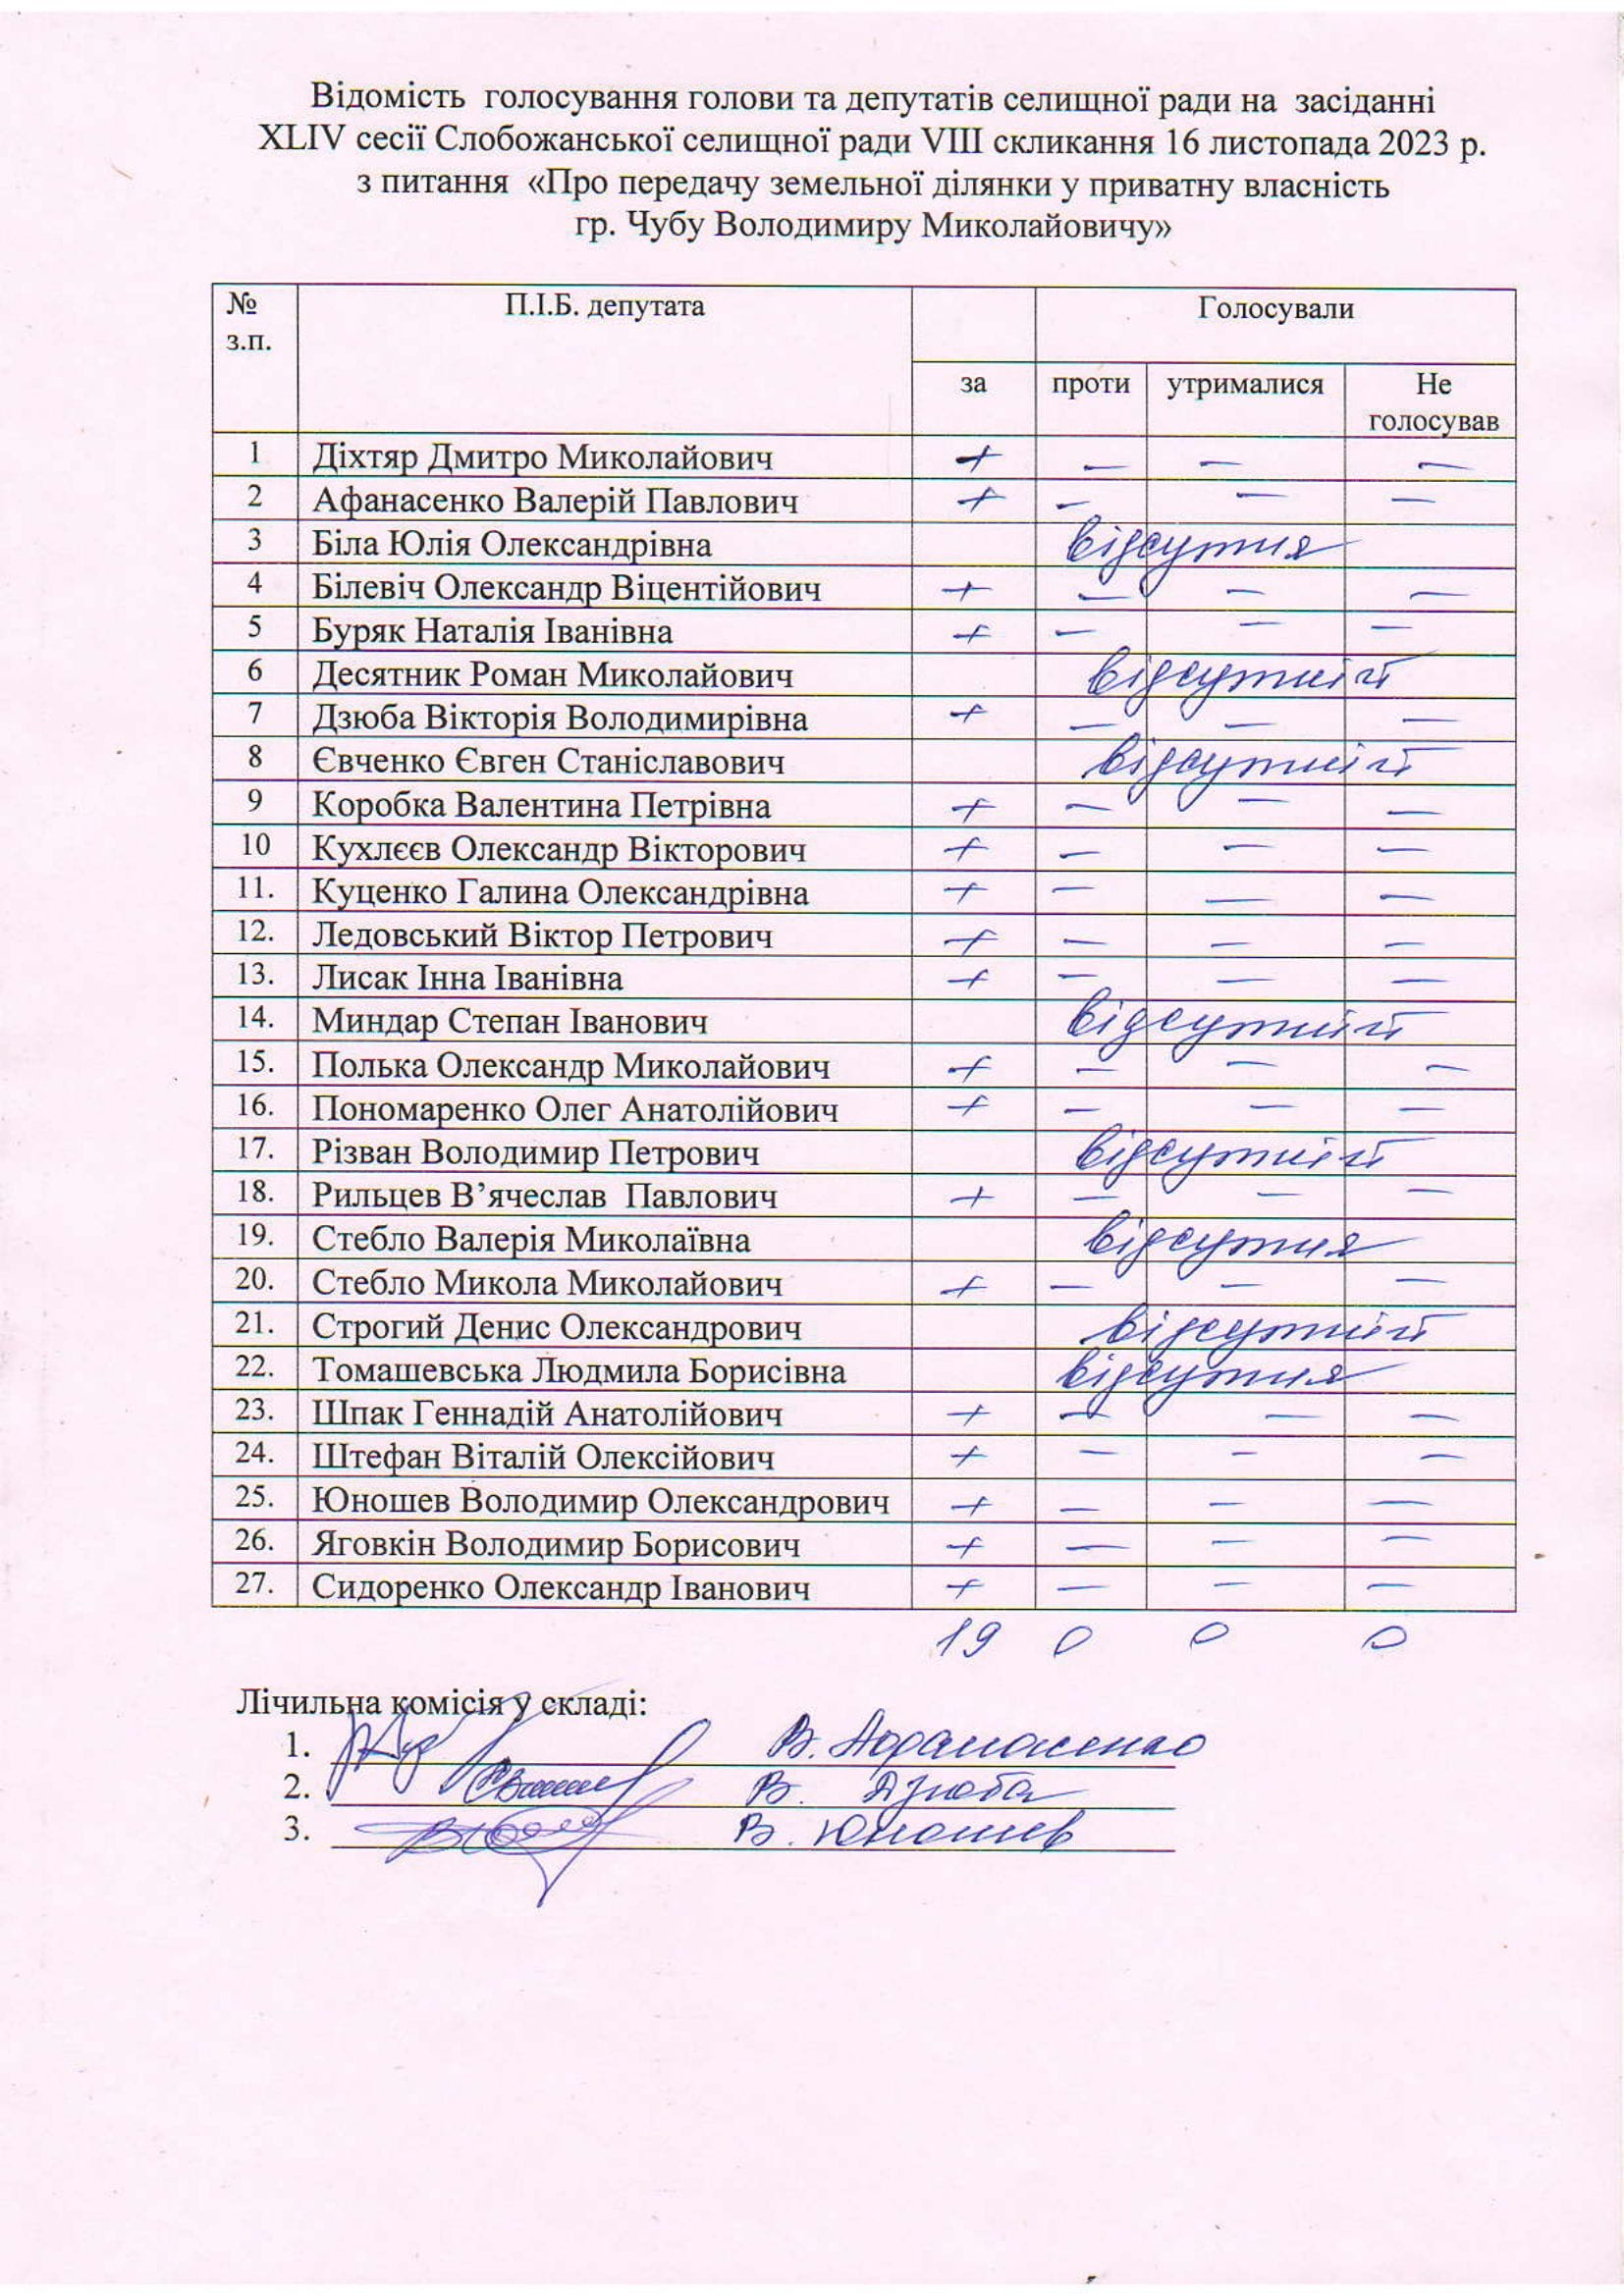 Відомість голосування голови та депутатів селищної ради на засіданні
XLIV сесії Слобожанської селищної ради VIII скликання 16 листопада 2023 р.
з питання «Про передачу земельної ділянки у приватну власність
гр. Чубу Володимиру Миколайовичу»
№ з.п. П.І.Б. депутата Голосували
за проти утрималися Не голосував
1 Діхтяр Дмитро Миколайович + – – –
2 Афанасенко Валерій Павлович + – – –
3 Біла Юлія Олександрівна відсутня
4 Білевіч Олександр Віцентійович + – – –
5 Буряк Наталія Іванівна + – – –
6 Десятник Роман Миколайович відсутній
7 Дзюба Вікторія Володимирівна + – – –
8 Євченко Євген Станіславович відсутній
9 Коробка Валентина Петрівна + – – –
10 Кухлєєв Олександр Вікторович + – – –
11. Куценко Галина Олександрівна + – – –
12. Ледовський Віктор Петрович + – – –
13. Лисак Інна Іванівна + – – –
14. Миндар Степан Іванович відсутній
15. Полька Олександр Миколайович + – – –
16. Пономаренко Олег Анатолійович + – – –
17. Різван Володимир Петрович відсутній
18. Рильцев В’ячеслав Павлович + – – –
19. Стебло Валерія Миколаївна відсутня
20. Стебло Микола Миколайович + – – –
21. Строгий Денис Олександрович відсутній
22. Томашевська Людмила Борисівна відсутня
23. Шпак Геннадій Анатолійович + – – –
24. Штефан Віталій Олексійович + – – –
25. Юношев Володимир Олександрович + – – –
26. Яговкін Володимир Борисович + – – –
27. Сидоренко Олександр Іванович + – – –
19 0 0 0
Лічильна комісія у складі:
1. В. Афанасенко
2. В. Дзюба
3. В. Юношев